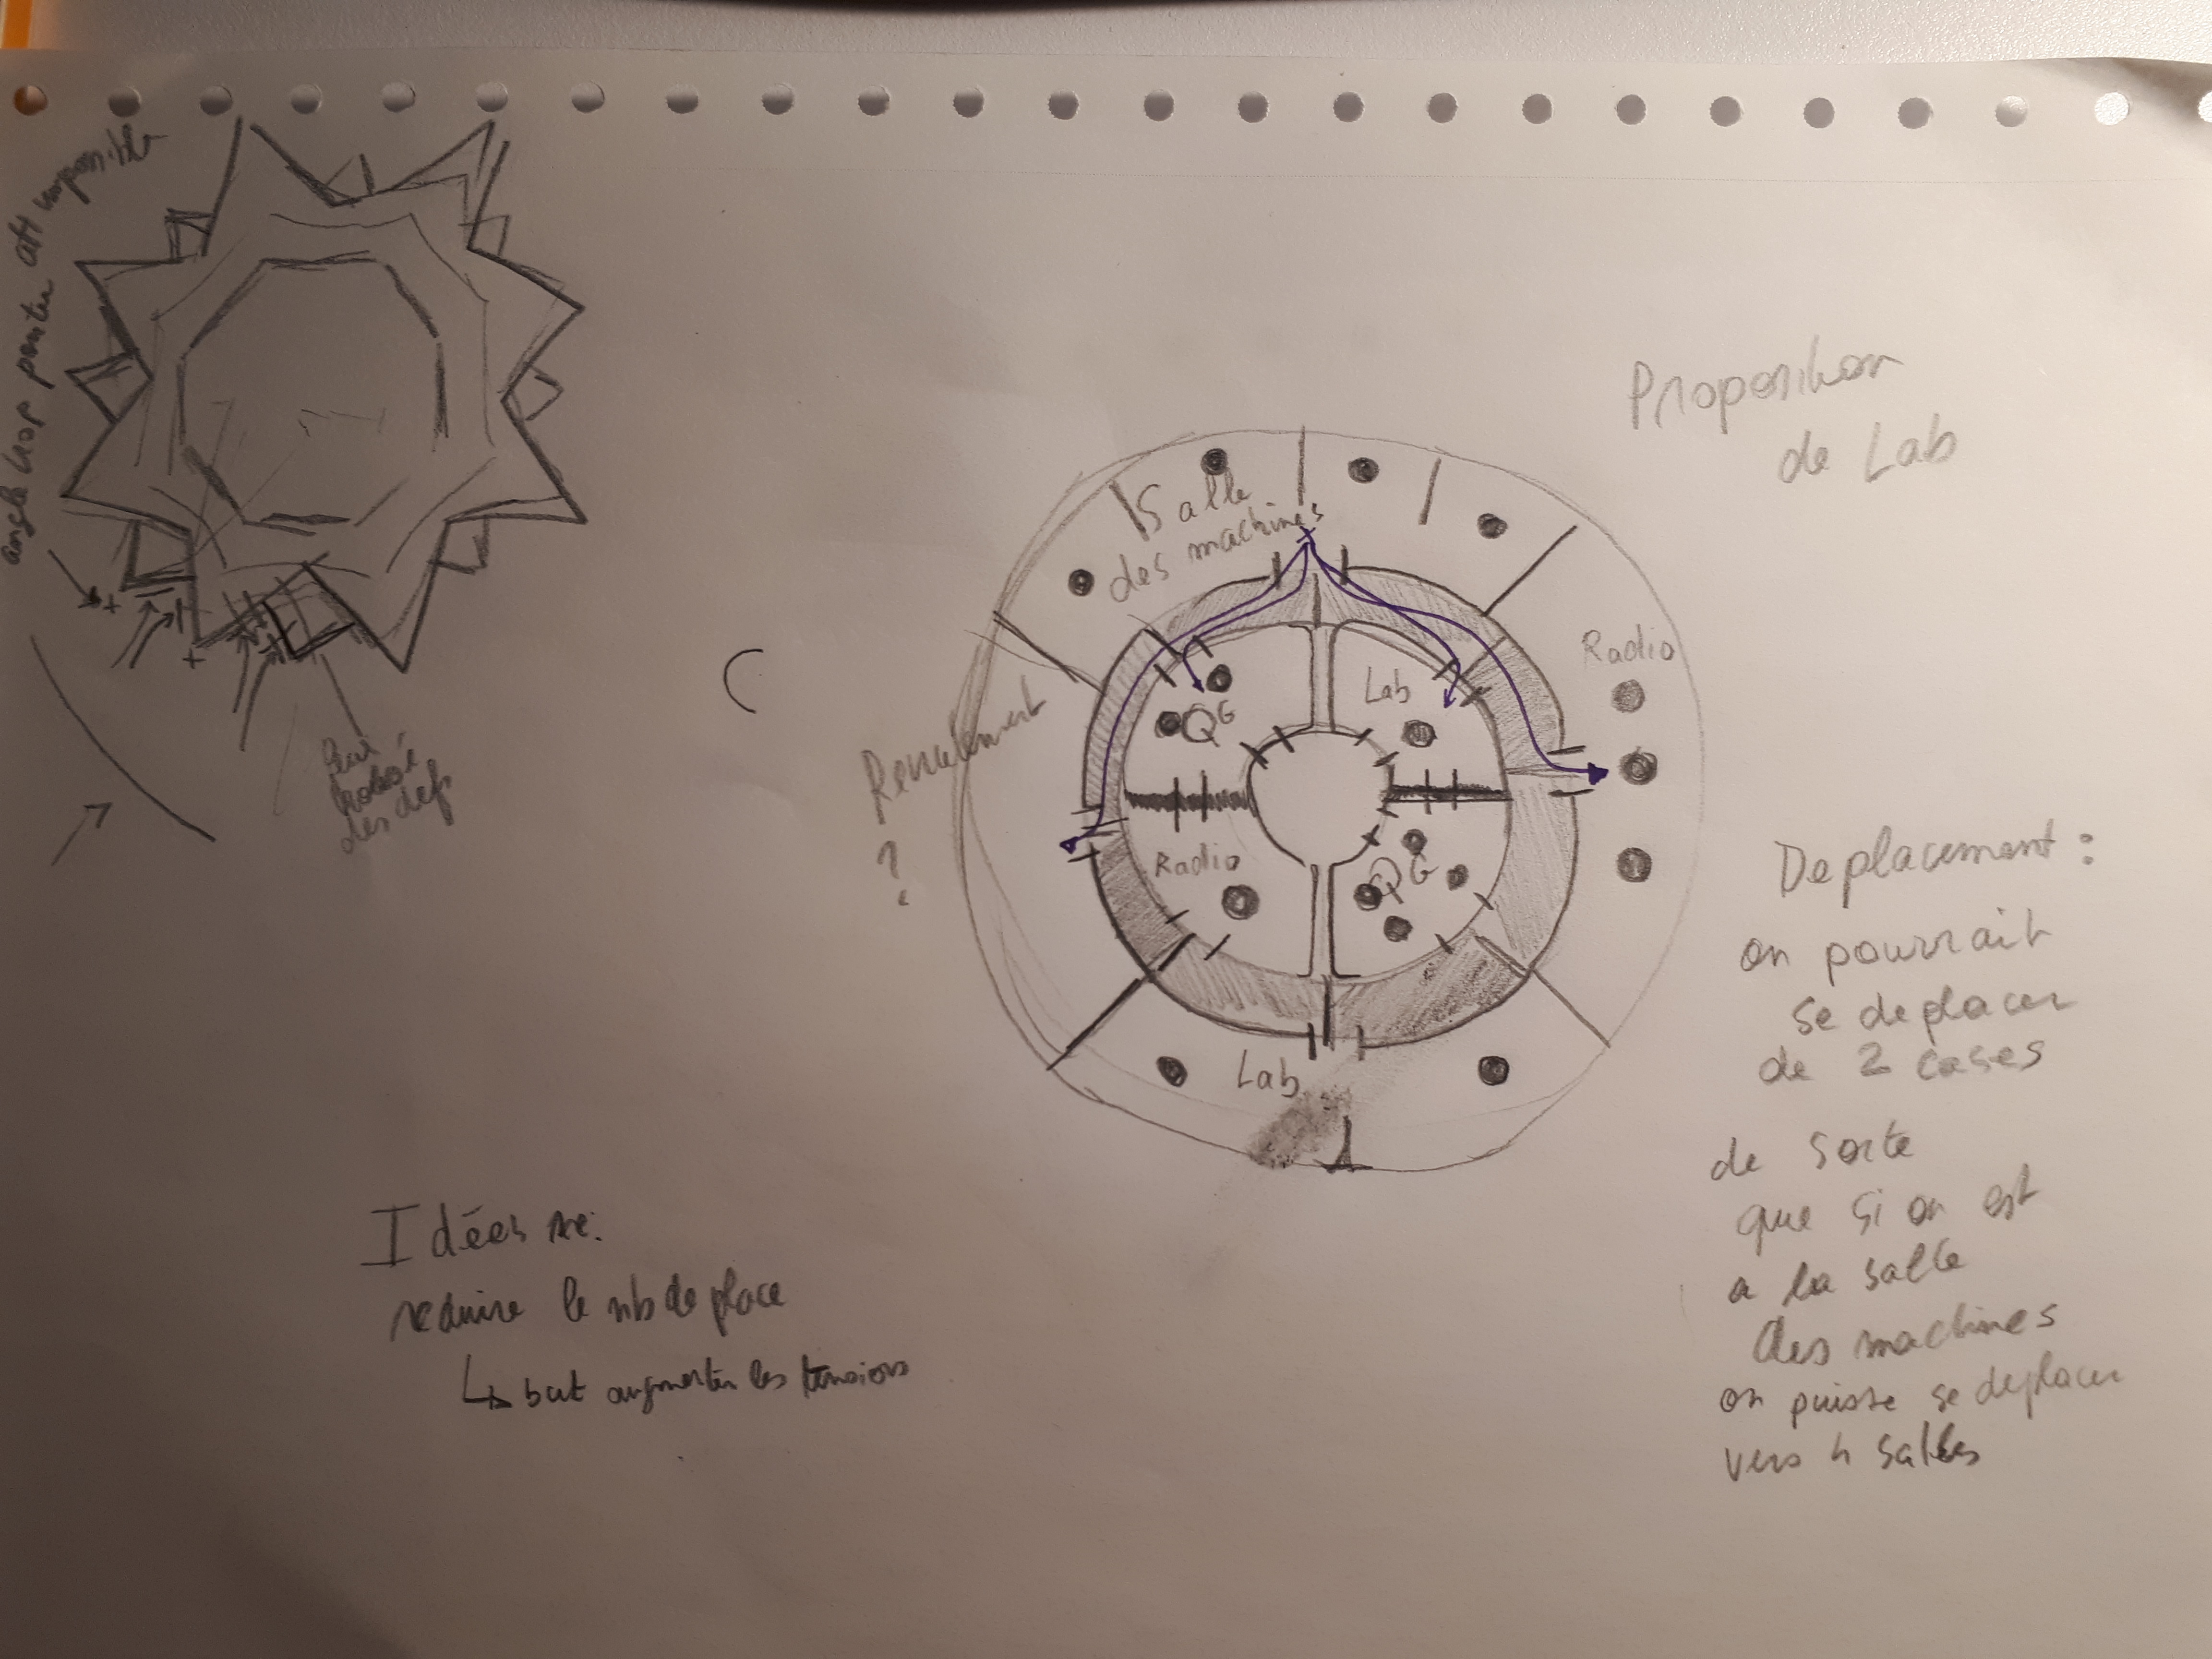 angle trop pointu att impossible
Proposition
de Lab
Salle
des machines
Radio
Lab
QG
Radio
QG
Lab
?
des defs
Deplacement :
on pourrait
se deplacer
de 2 cases
de sorte
que si on est
a la salle
des machines
on puisse se deplacer
vers 4 salles
Idées re:
reduire le nb de place
↳ but augmenter les tensions